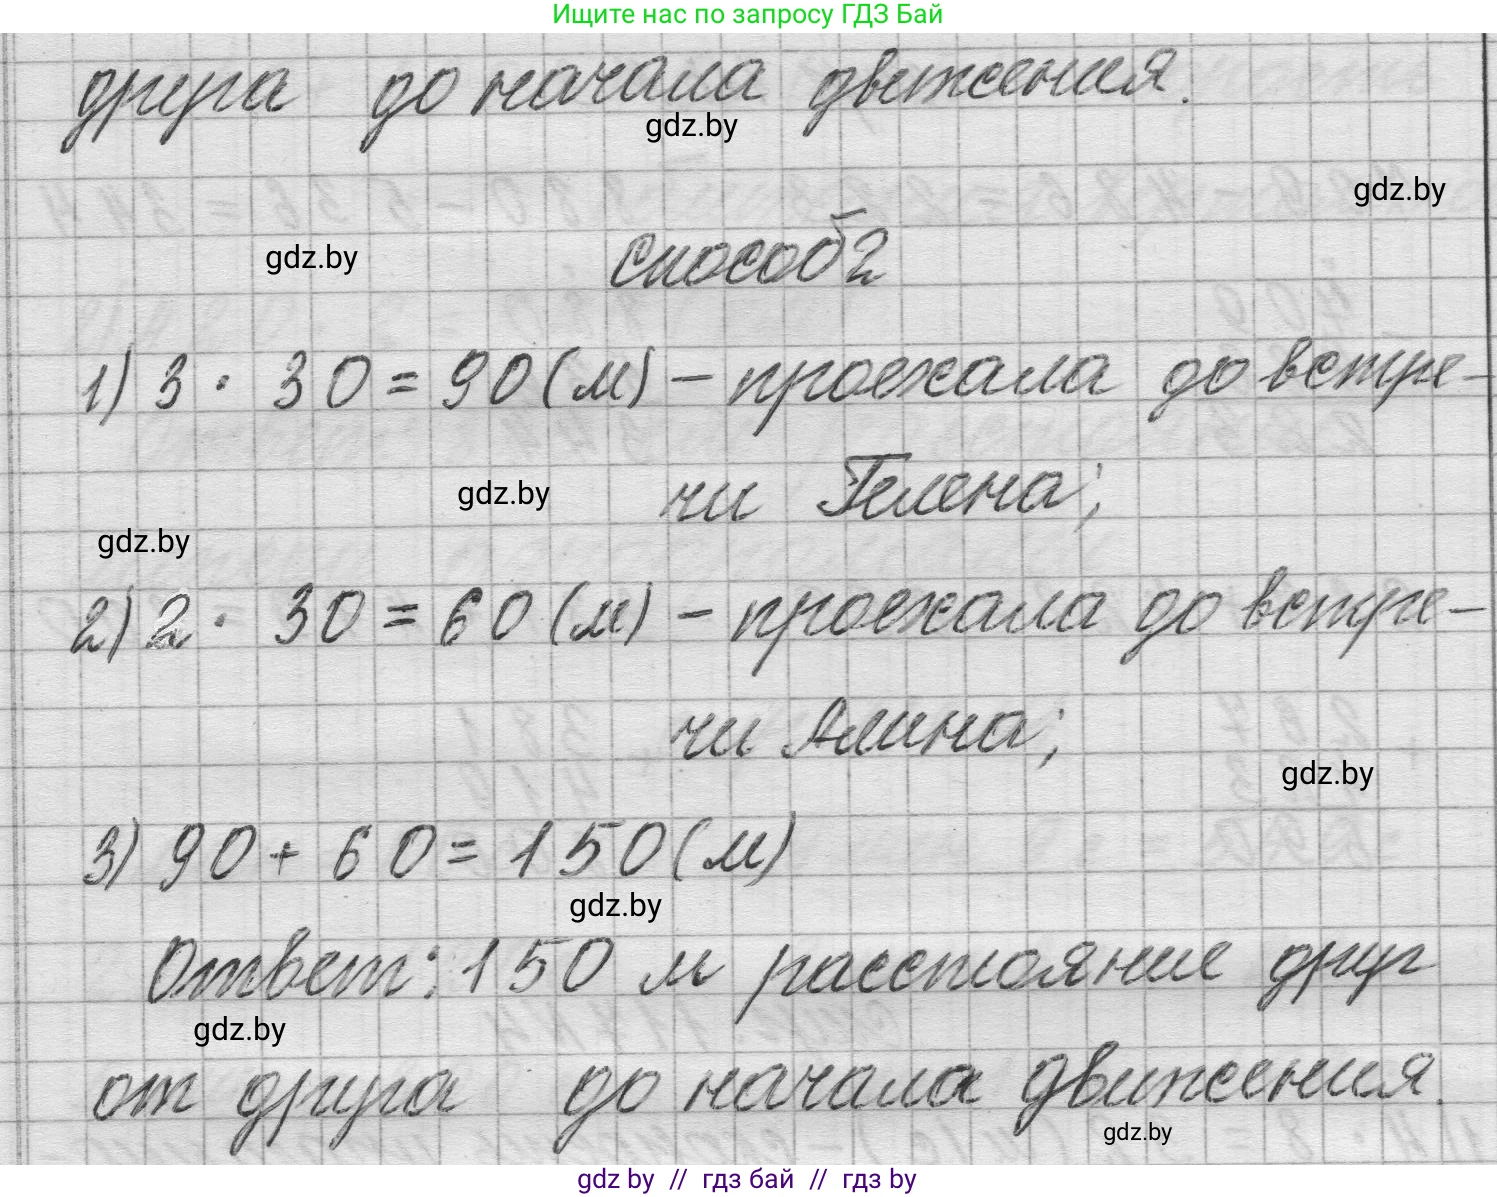 Ищите нас по запросу ГДЗ Бай
друга до начала движения.
gdz.by
gdz.by
способ 2
gdz.by
1) 3 · 30 = 90 (м) – проехала до встре-
чи Гелена;
gdz.by
gdz.by
2) 2 · 30 = 60 (м) – проехала до встре-
чи Алина;
gdz.by
3) 90 + 60 = 150 (м)
gdz.by
Ответ: 150 м расстояние друг
gdz.by
от друга до начала движения.
gdz.by
gdz by // гдз бай // гдз by